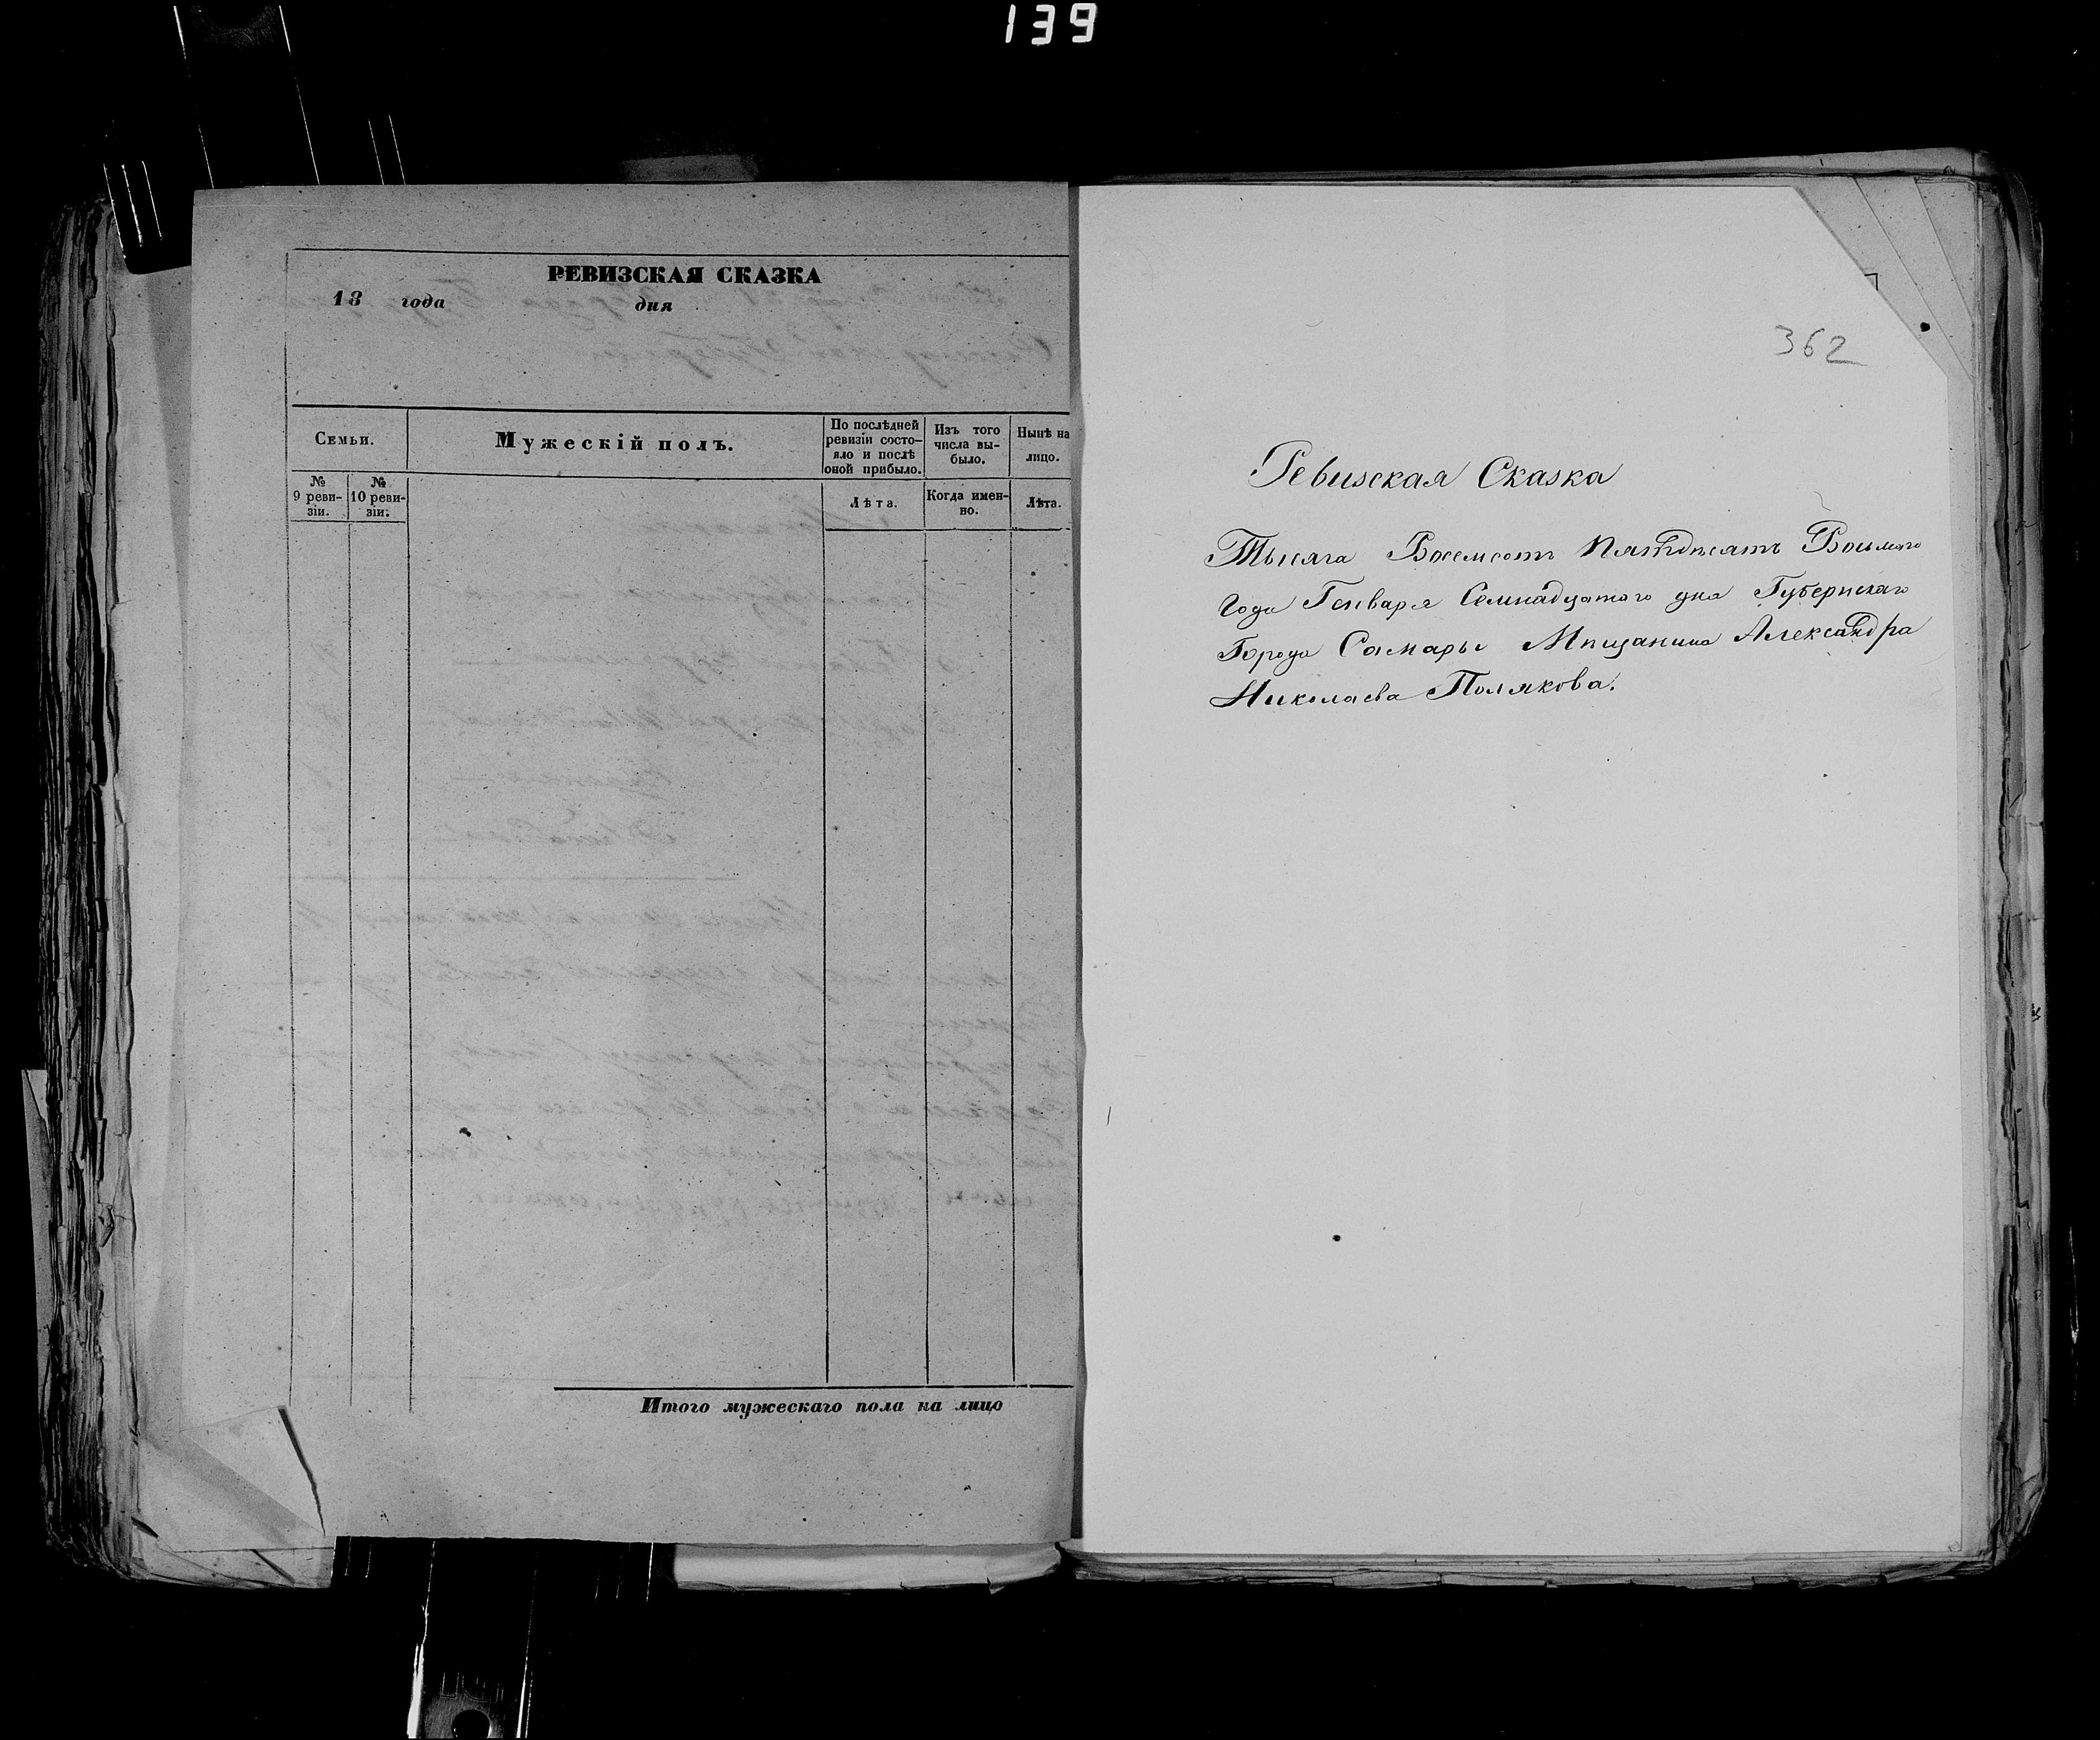 139
РЕВИЗСКАЯ СКАЗКА
18 года дня
Семьи.
Мужескій полъ.
По послѣдней ревизіи состо-
яло и послѣ оной прибыло.
Изъ того числа вы-
было.
Нынѣ на лицо.
№ 9 реви-
зіи.
№ 10 реви-
зіи.
Лѣта.
Когда имен-
но.
Лѣта.
Итого мужескаго пола на лицо
362
Ревизская Сказка
Тысяча Восемсотъ Пятдѣсятъ Восьмого
Года Генваря Семнадцатого дня Губернскаго
Города Самары Мѣщанина Александра
Николаева Полякова.